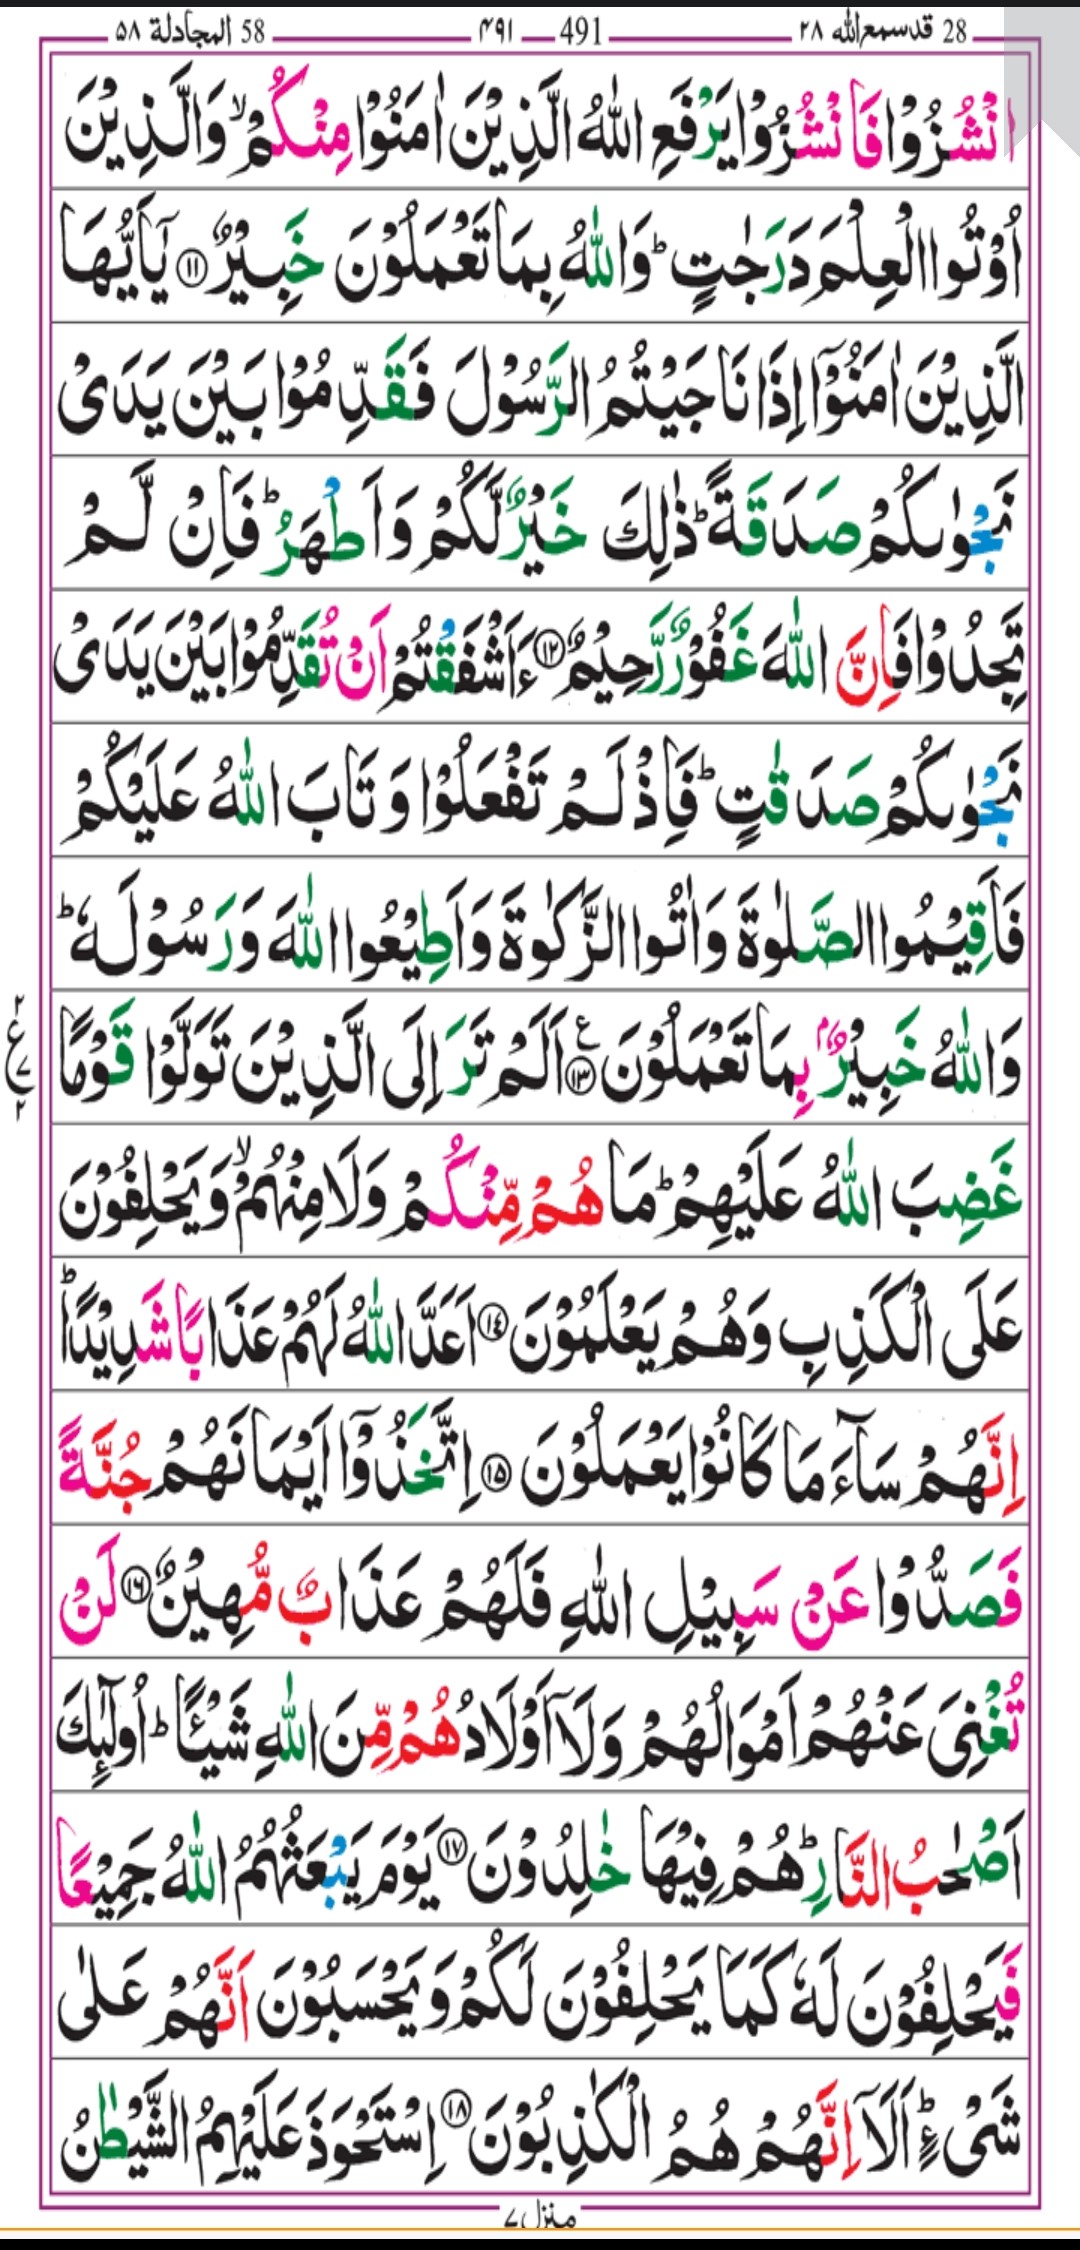 28 قدسمع الله ٢٨ 491 ۴۹۱ 58 المجادلة ۵۸
انْشُزُوْا فَانْشُزُوْا يَرْفَعِ اللّٰهُ الَّذِيْنَ اٰمَنُوْا مِنْكُمْ ۙ وَالَّذِيْنَ
اُوْتُوا الْعِلْمَ دَرَجٰتٍ ؕ وَاللّٰهُ بِمَا تَعْمَلُوْنَ خَبِيْرٌ ⑪ يٰۤاَيُّهَا
الَّذِيْنَ اٰمَنُوْۤا اِذَا نَاجَيْتُمُ الرَّسُوْلَ فَقَدِّمُوْا بَيْنَ يَدَىْ
نَجْوٰىكُمْ صَدَقَةً ؕ ذٰلِكَ خَيْرٌ لَّكُمْ وَاَطْهَرُ ؕ فَاِنْ لَّمْ
تَجِدُوْا فَاِنَّ اللّٰهَ غَفُوْرٌ رَّحِيْمٌ ⑫ ءَاَشْفَقْتُمْ اَنْ تُقَدِّمُوْا بَيْنَ يَدَىْ
نَجْوٰىكُمْ صَدَقٰتٍ ؕ فَاِذْ لَمْ تَفْعَلُوْا وَتَابَ اللّٰهُ عَلَيْكُمْ
فَاَقِيْمُوا الصَّلٰوةَ وَاٰتُوا الزَّكٰوةَ وَاَطِيْعُوا اللّٰهَ وَرَسُوْلَهٗ ؕ
وَاللّٰهُ خَبِيْرٌۢ بِمَا تَعْمَلُوْنَ ⑬ ع اَلَمْ تَرَ اِلَى الَّذِيْنَ تَوَلَّوْا قَوْمًا
٢ ع ٧ ٢
غَضِبَ اللّٰهُ عَلَيْهِمْ ؕ مَا هُمْ مِّنْكُمْ وَلَا مِنْهُمْ ۙ وَيَحْلِفُوْنَ
عَلَى الْكَذِبِ وَهُمْ يَعْلَمُوْنَ ⑭ اَعَدَّ اللّٰهُ لَهُمْ عَذَابًا شَدِيْدًا ؕ
اِنَّهُمْ سَآءَ مَا كَانُوْا يَعْمَلُوْنَ ⑮ اِتَّخَذُوْۤا اَيْمَانَهُمْ جُنَّةً
فَصَدُّوْا عَنْ سَبِيْلِ اللّٰهِ فَلَهُمْ عَذَابٌ مُّهِيْنٌ ⑯ لَنْ
تُغْنِىَ عَنْهُمْ اَمْوَالُهُمْ وَلَاۤ اَوْلَادُهُمْ مِّنَ اللّٰهِ شَيْـًٔا ؕ اُولٰٓئِكَ
اَصْحٰبُ النَّارِ ؕ هُمْ فِيْهَا خٰلِدُوْنَ ⑰ يَوْمَ يَبْعَثُهُمُ اللّٰهُ جَمِيْعًا
فَيَحْلِفُوْنَ لَهٗ كَمَا يَحْلِفُوْنَ لَكُمْ وَيَحْسَبُوْنَ اَنَّهُمْ عَلٰى
شَىْءٍ ؕ اَلَاۤ اِنَّهُمْ هُمُ الْكٰذِبُوْنَ ⑱ اِسْتَحْوَذَ عَلَيْهِمُ الشَّيْطٰنُ
منزل ٧